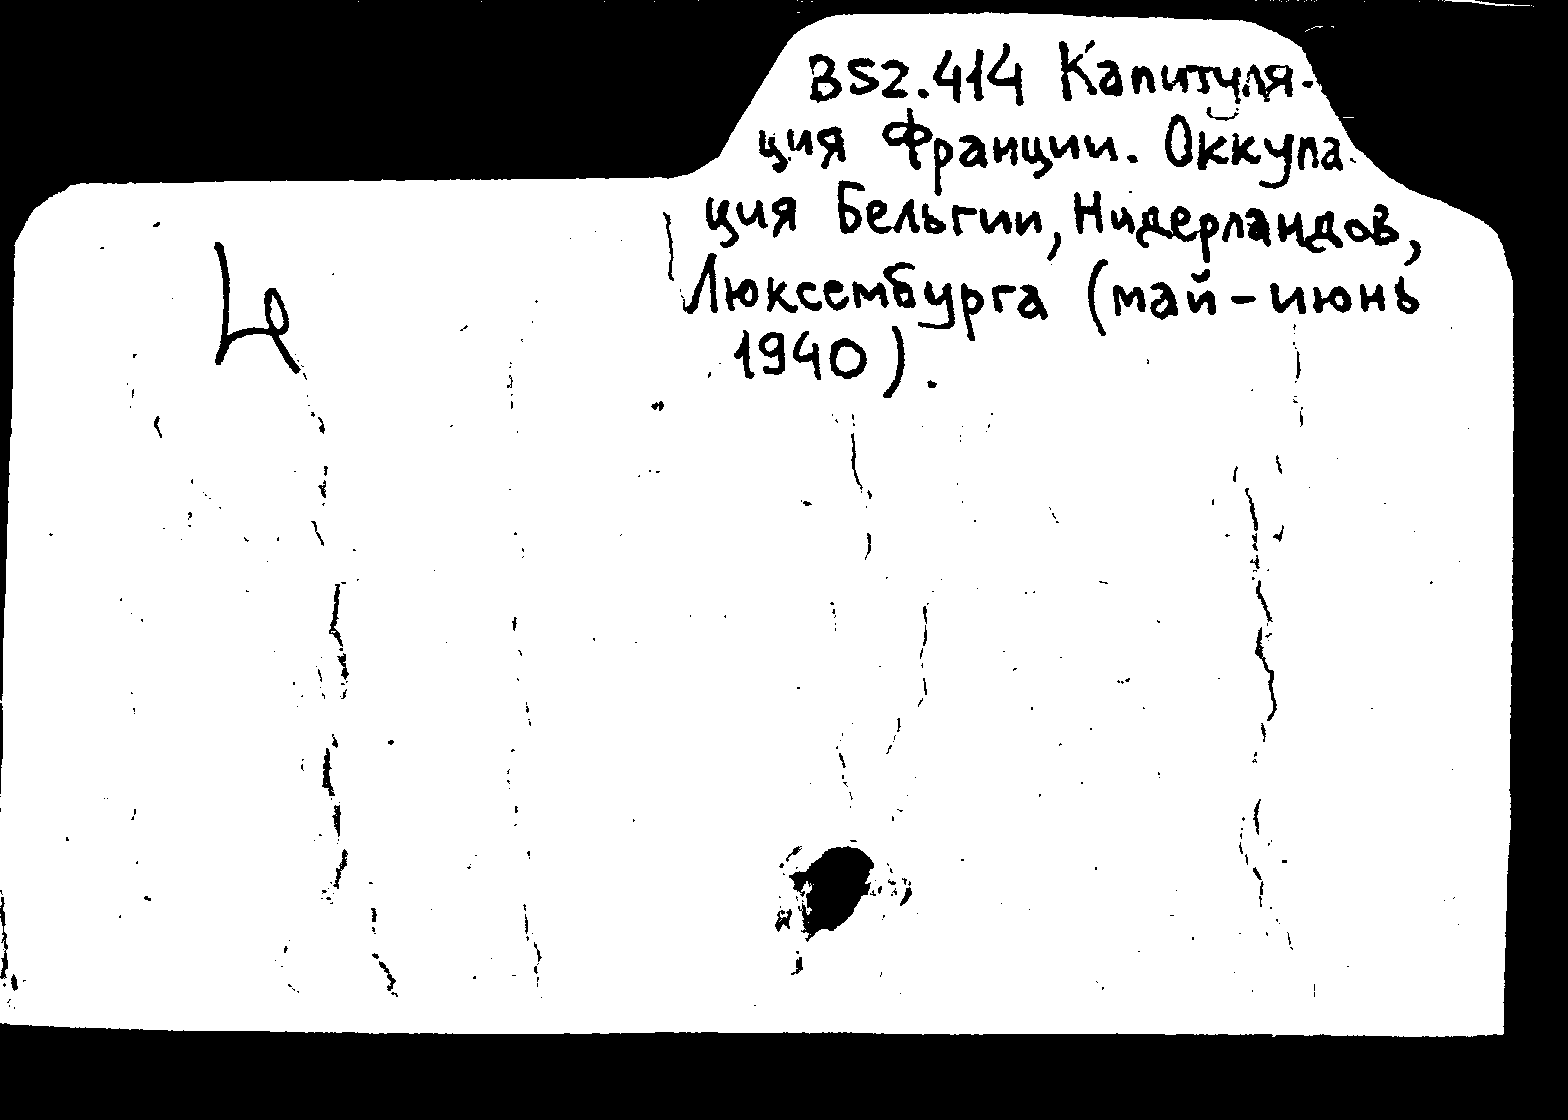 В52.414 Капитуля-
ция Франции. Оккупа
ция Бельгии, Нидерландов,
Люксембурга (май-июнь
1940).